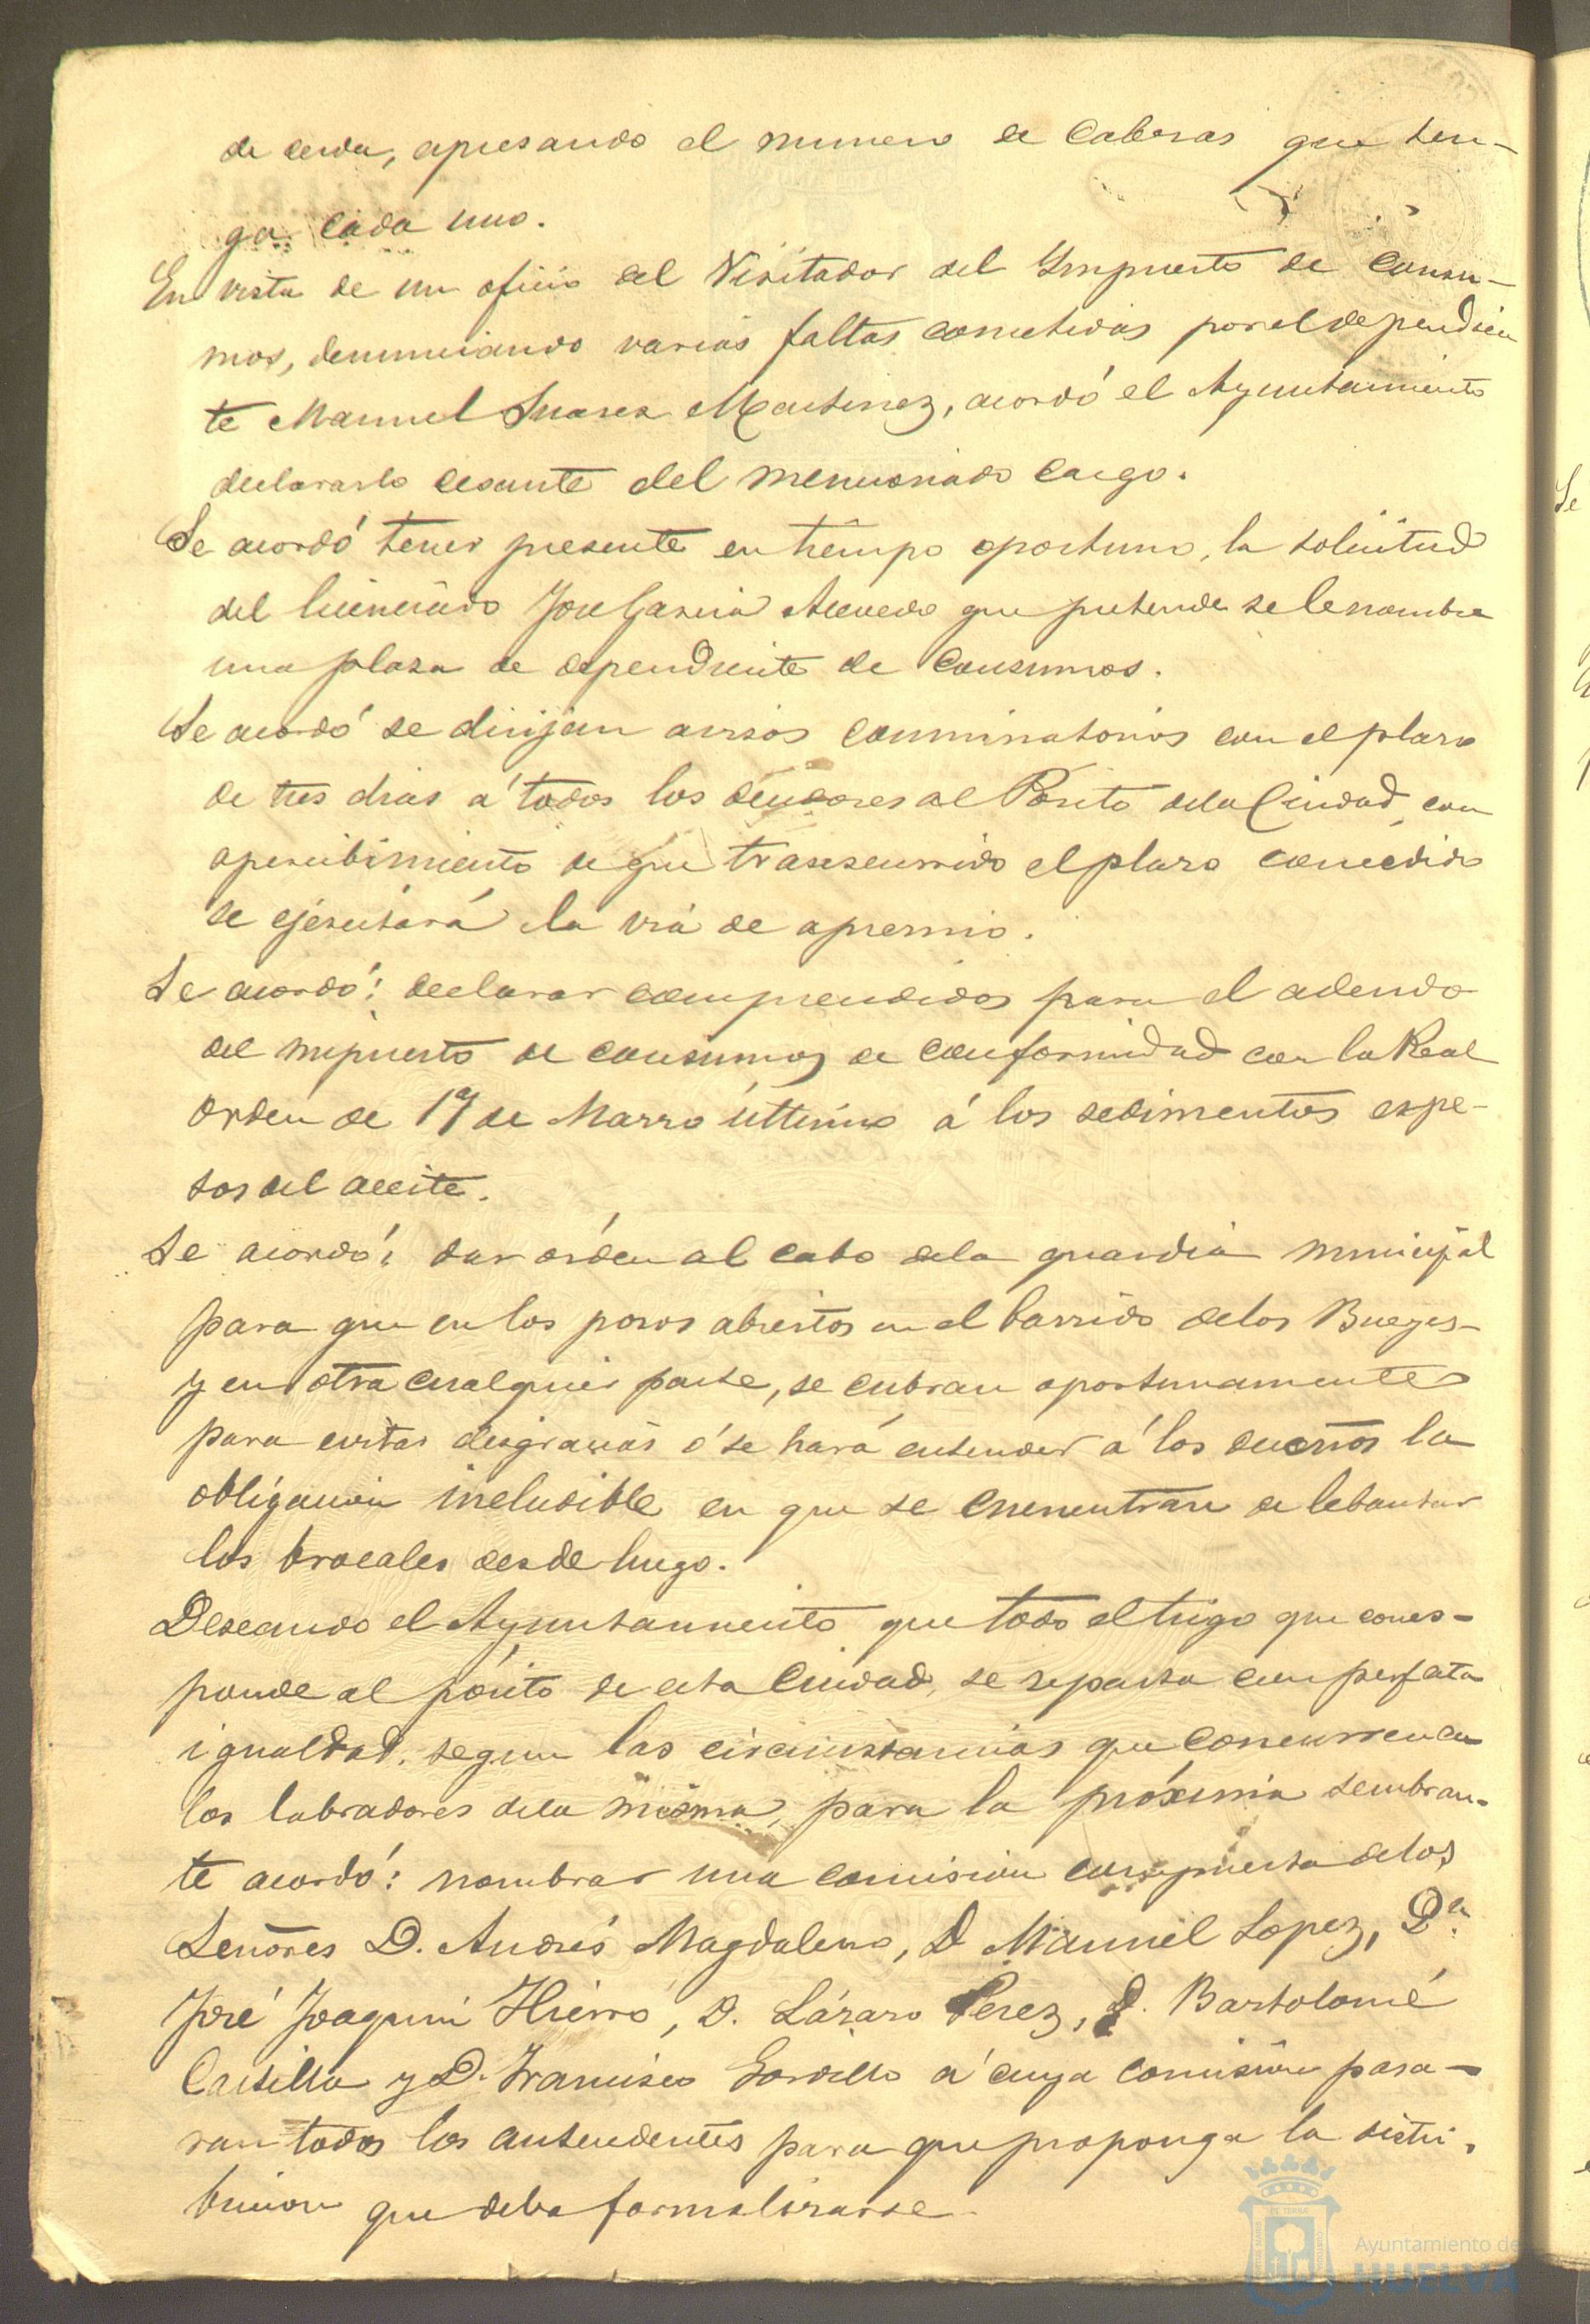 de cerda, apresando el numero de Cabesas que ten-
ga cada uno.
En vista de un oficio del Visitador del Ympuesto de Consu-
mos, denunciando varias faltas cometidas por el dependien
te Manuel Suarez Martinez, acordó el Ayuntamiento
declararlo cesante del mencionado cargo.
Se acordó tener presente en tiempo oportuno, la solicitud
del licenciado José Garcia Acevedo que pretende se le nombre
una plasa de dependiente de Consumos.
Se acordó se dirijan avisos conminatorios con el plaso
de tres dias á todos los deudores al Pósito de la Ciudad, con
apercibimiento de que trascscurrido el plaso concedido
se ejecutará la via de apremio.
Se acordó: declarar comprendidos para el adeudo
del impuesto de consumos de conformidad con la Real
orden de 19 de Marzo último á los sedimentos espe-
sos del aceite.
Se acordó: dar órden al cabo de la guardia municipal
para que en los posos abiertos en el barrido de los Bueyes-
y en otra cualquier parte, se cubran oportunamente
para evitar desgracias ó se hará entender á los dueños la
obligacion ineludible en que se encuentran de lebantar
los brocales desde luego.
Deseando el Ayuntamiento que todo el trigo que corres-
ponde al pósito de esta Ciudad, se reparta con perfecta
igualdad, segun las circunstancias que concurren en
los labradores de la misma, para la próxima sembran-
te acordó: nombrar una comision compuesta de los
Señores D. Andrés Magdaleno, D Manuel Lopez, Dn.
José Joaquin Hierro, D. Lázaro Pérez, D. Bartolomé
Castilla y D. Francisco Gordillo á cuya comision pasa-
ran todos los antecedentes para que proponga la distri-
bucion que deba formalizarse.
Ayuntamiento de
HUELVA